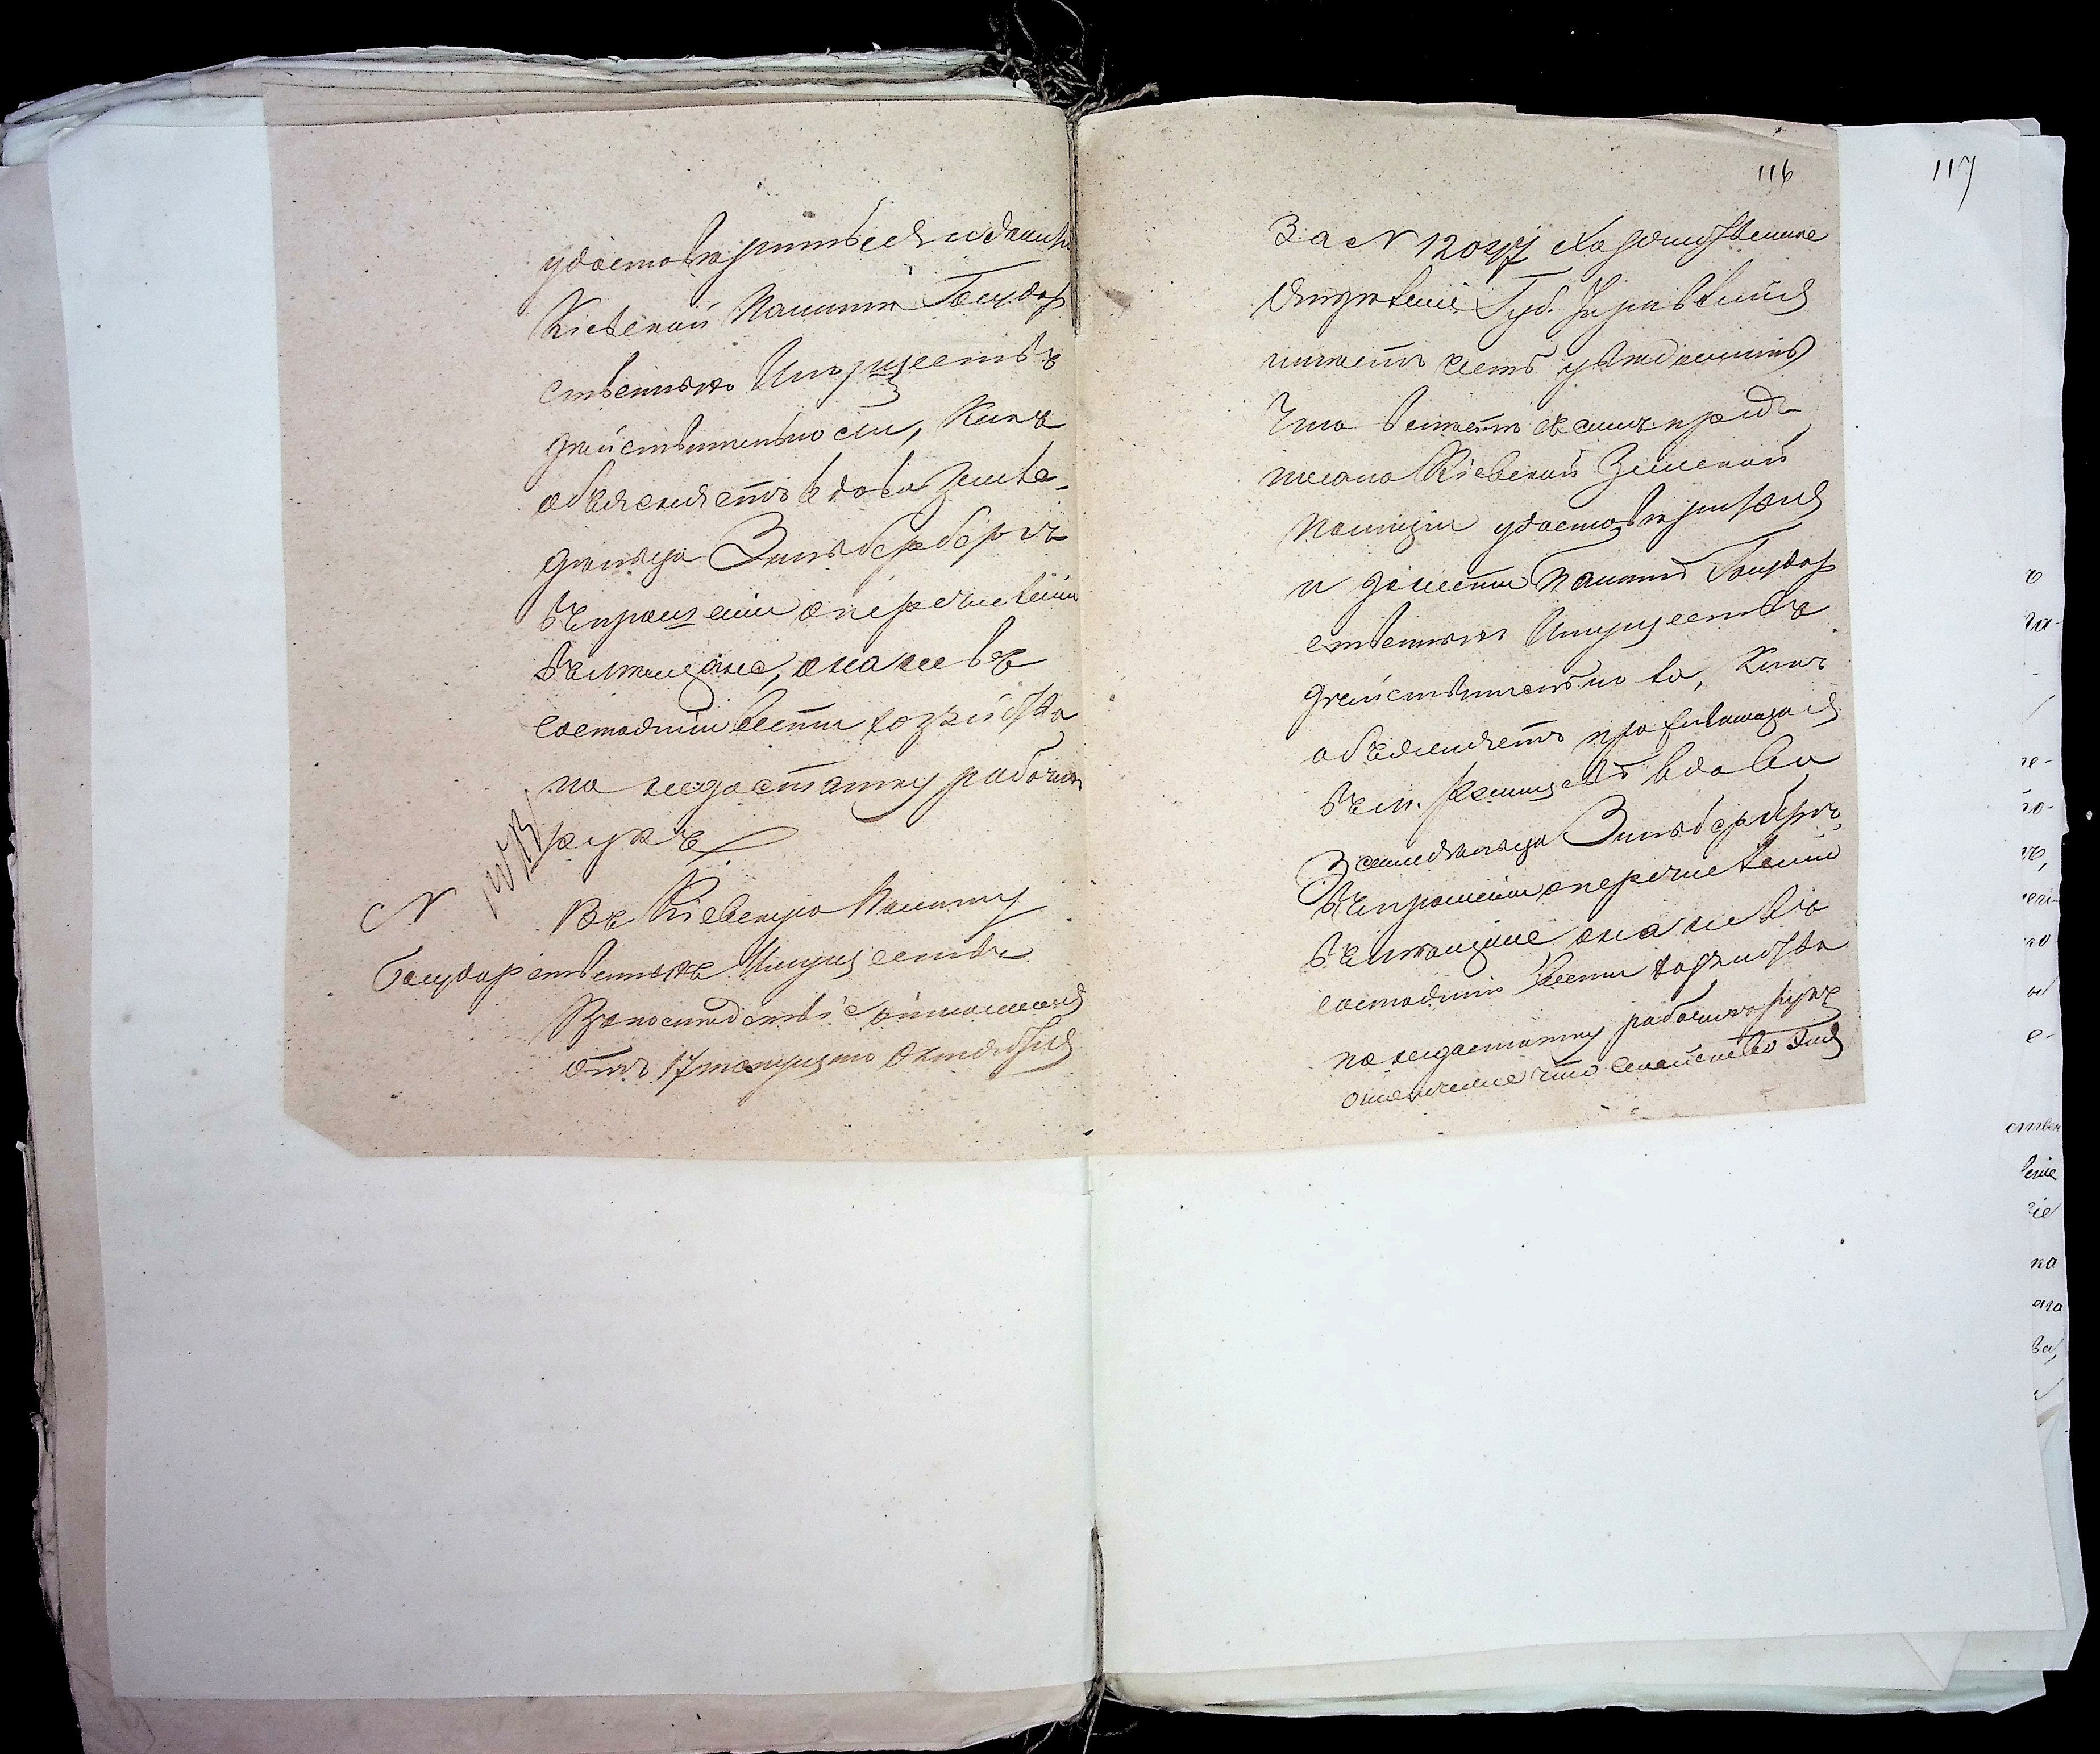 удостовѣриться и данныя
Кіевской Палатѣ Государ
ственныхъ Имуществъ
дѣйствительно ли, какъ
объясняетъ вдова Земле-
дѣльца Зильберберга
въ прошеніи о перечисленіи
въ мѣщане, она не въ
состояніи вести хозяйства
по недостатку рабочихъ
рукъ
N
Въ Кіевскую Палату
Государственныхъ Имуществъ
Въ послѣдствіе отношенія
отъ 17 текущаго Октября
116
117
За N 12047 Хозяйственное
Отдѣленіе Губ. Правленія
имѣетъ честь увѣдомить
что вмѣстѣ съ симъ пред-
писано Кіевской Земской
Полиціи удостовѣриться
и донести Палатѣ Государ
ственныхъ Имуществъ
дѣйствительно ли, какъ
объясняетъ проживающая
въ м. вдова
Земледѣльца Зильберберга
въ прошеніи о перечисленіи
въ мѣщане она не въ
состояніи вести хозяйства
по недостатку рабочихъ рукъ
что семейство